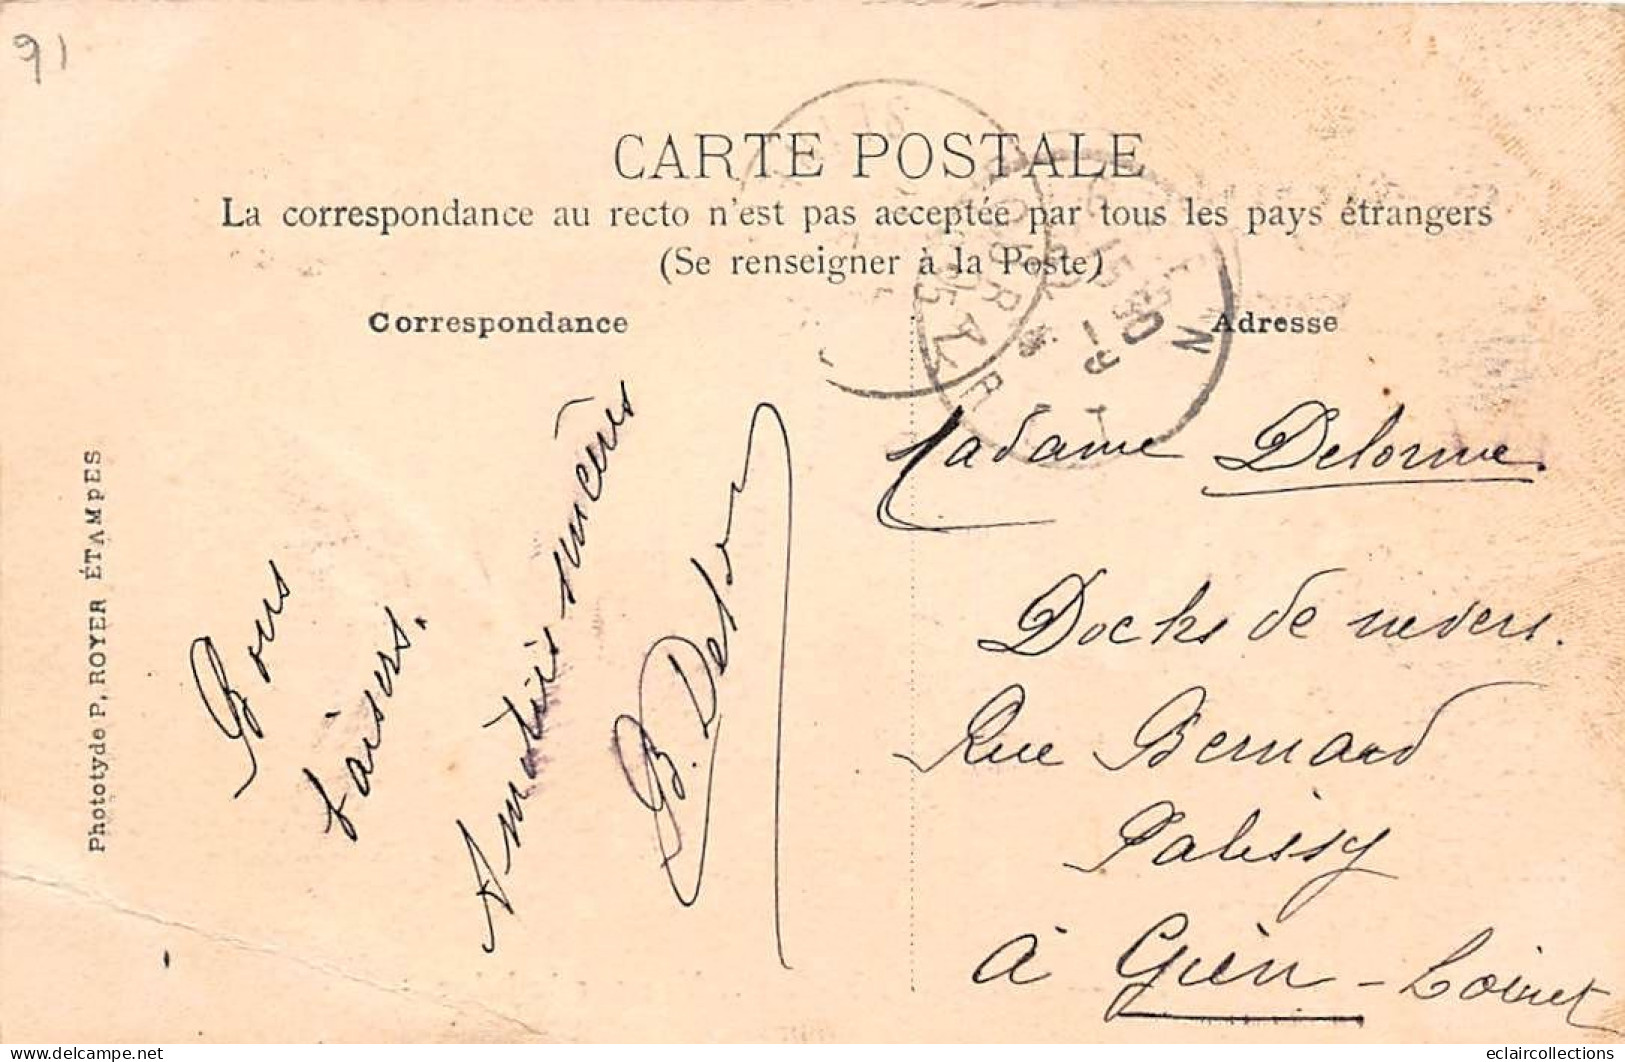 91
CARTE POSTALE
La correspondance au recto n'est pas acceptée par tous les pays étrangers
(Se renseigner à la Poste)
Correspondance
Adresse
Phototyde P. ROYER ÉTAMPES
Bons
baisers.
Amitiés sincères
B. Delor
Madame Delorme.
Docks de nevers.
Rue Bernard
Palissy
à Gien - Loiret
eclaircollections